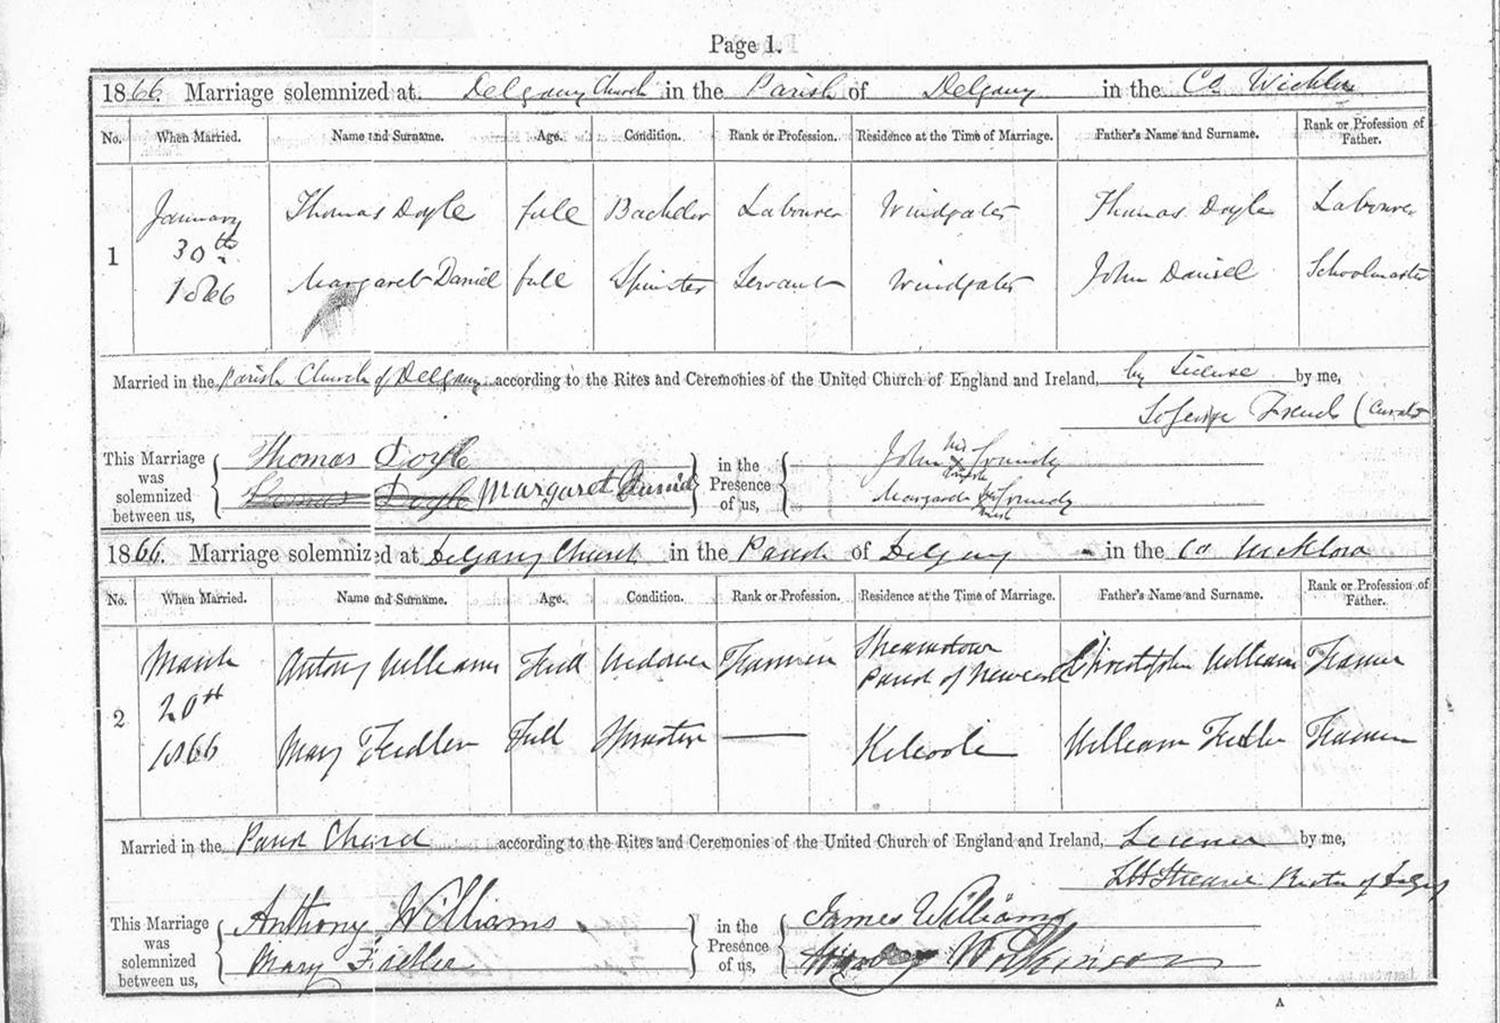 Page 1.
1866. Marriage solemnized at Delgany Church in the Parish of Delgany in the Co Wicklow
No. When Married. Name and Surname. Age. Condition. Rank or Profession. Residence at the Time of Marriage. Father's Name and Surname. Rank or Profession of Father.
1 January 30th 1866 Thomas Doyle full Bachelor Labourer Windgates Thomas Doyle Labourer
Margaret Daniel full Spinster Servant Windgates John Daniel Schoolmaster
Married in the Parish Church of Delgany according to the Rites and Ceremonies of the United Church of England and Ireland, by License by me,
George French (Curate
This Marriage was solemnized between us, Thomas Doyle in the Presence of us, John his x mark Grundy
Thomas Doyle Margaret Daniel Margaret her x mark Grundy
1866. Marriage solemnized at Delgany Church in the Parish of Delgany in the Co Wicklow
No. When Married. Name and Surname. Age. Condition. Rank or Profession. Residence at the Time of Marriage. Father's Name and Surname. Rank or Profession of Father.
2 March 20th 1866 Antony Williams Full Widower Farmer Parish of Newcastle Christopher Williams Farmer
Mary Fiedler Full Spinster — Kilcoole William Fiedler Farmer
Married in the Parish Church according to the Rites and Ceremonies of the United Church of England and Ireland, License by me,
Rector of Delgany
This Marriage was solemnized between us, Anthony Williams in the Presence of us, James Williams
Mary Fiedler Wilkinson
A